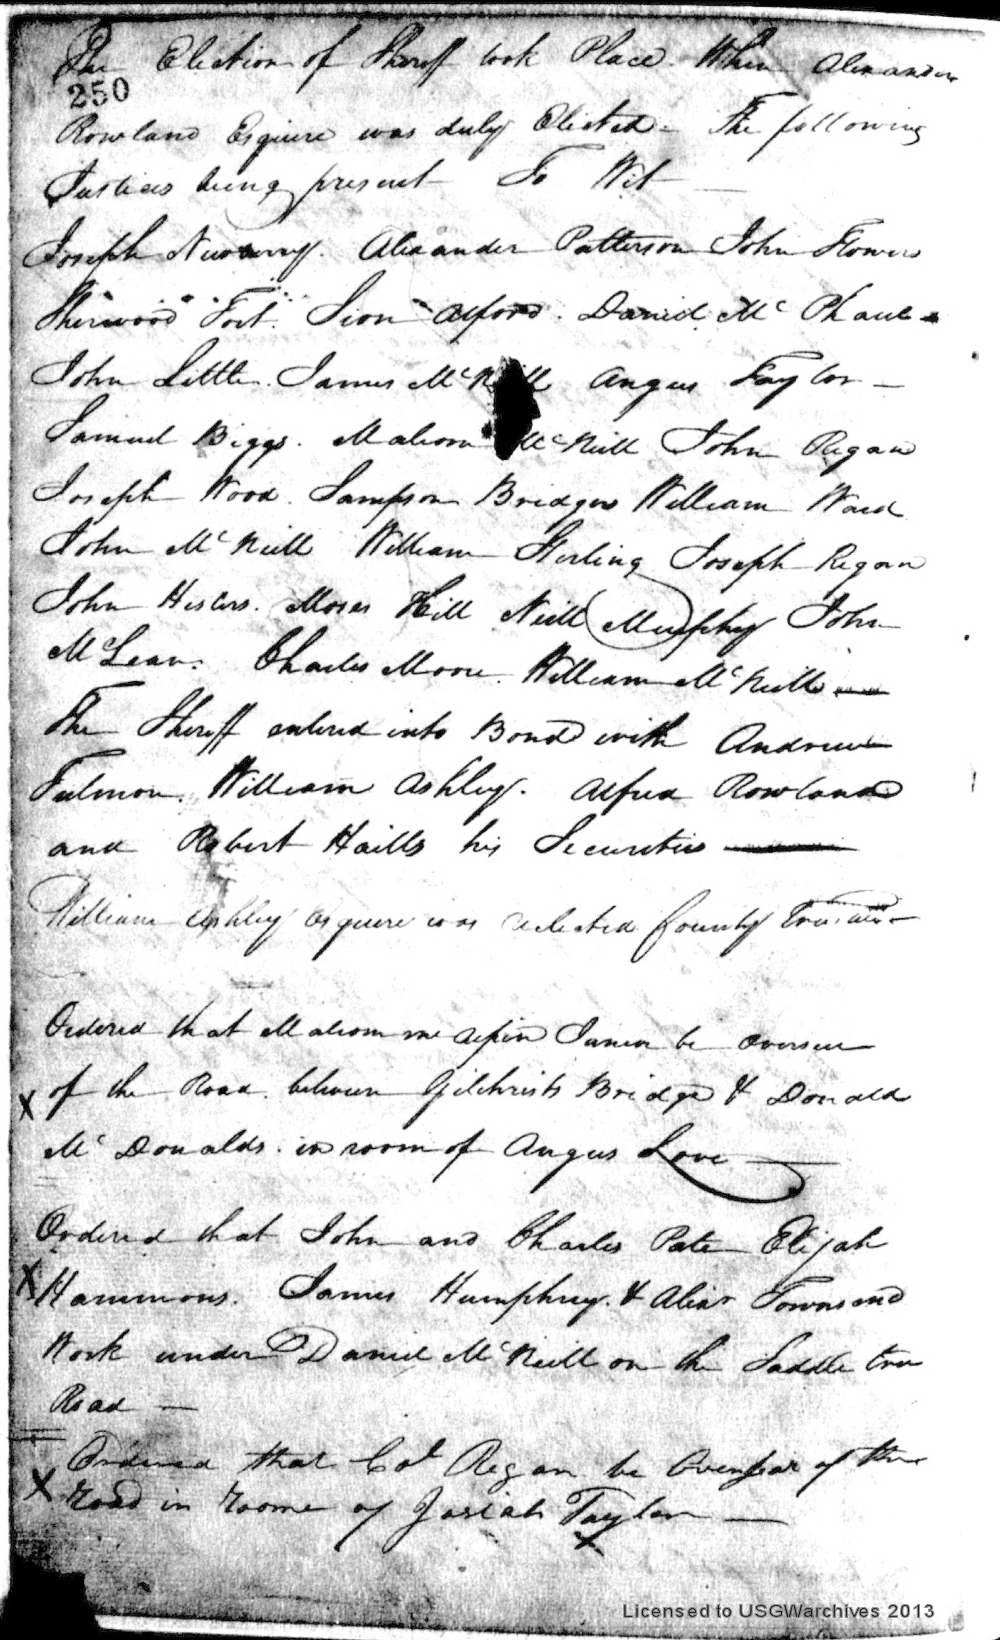 The Election of Sheriff took Place When Alexander
250
Rowland Esquire was duly Elected - The following
Justices being present To Wit
Joseph Newberry. Alexander Patterson John Flowers
Sherwood Fort. Sion Alford. Daniel Mc Phaul
John Little. James McNeill Angus Taylor -
Samuel Biggs. Malcom McNeill John Regan
Joseph Wood. Sampson Bridges William Ward
John McNeill William Sterling Joseph Regan
John Hesters. Moses Hill Neill Murphey John
McLean. Charles Moore. William McNeill
The Sheriff entered into Bond with Andrew
William Ashley. Alfred Rowland
and Robert Haills his Securities
William Ashley Esquire was elected County Trustee
Ordered that Malcom Junior be overseer
X of the Road between Gilchrists Bridge & Donald
McDonalds. in room of Angus Love
Ordered that John and Charles Pate Elijah
X Hammons. James Humphrey. & Alexr Townsend
Work under Daniel McNeill on the Saddle tree
Road -
Ordered that Col Regan be Overseear of the
X Road in Roome of Josiah Taylor -
x
Licensed to USGWarchives 2013